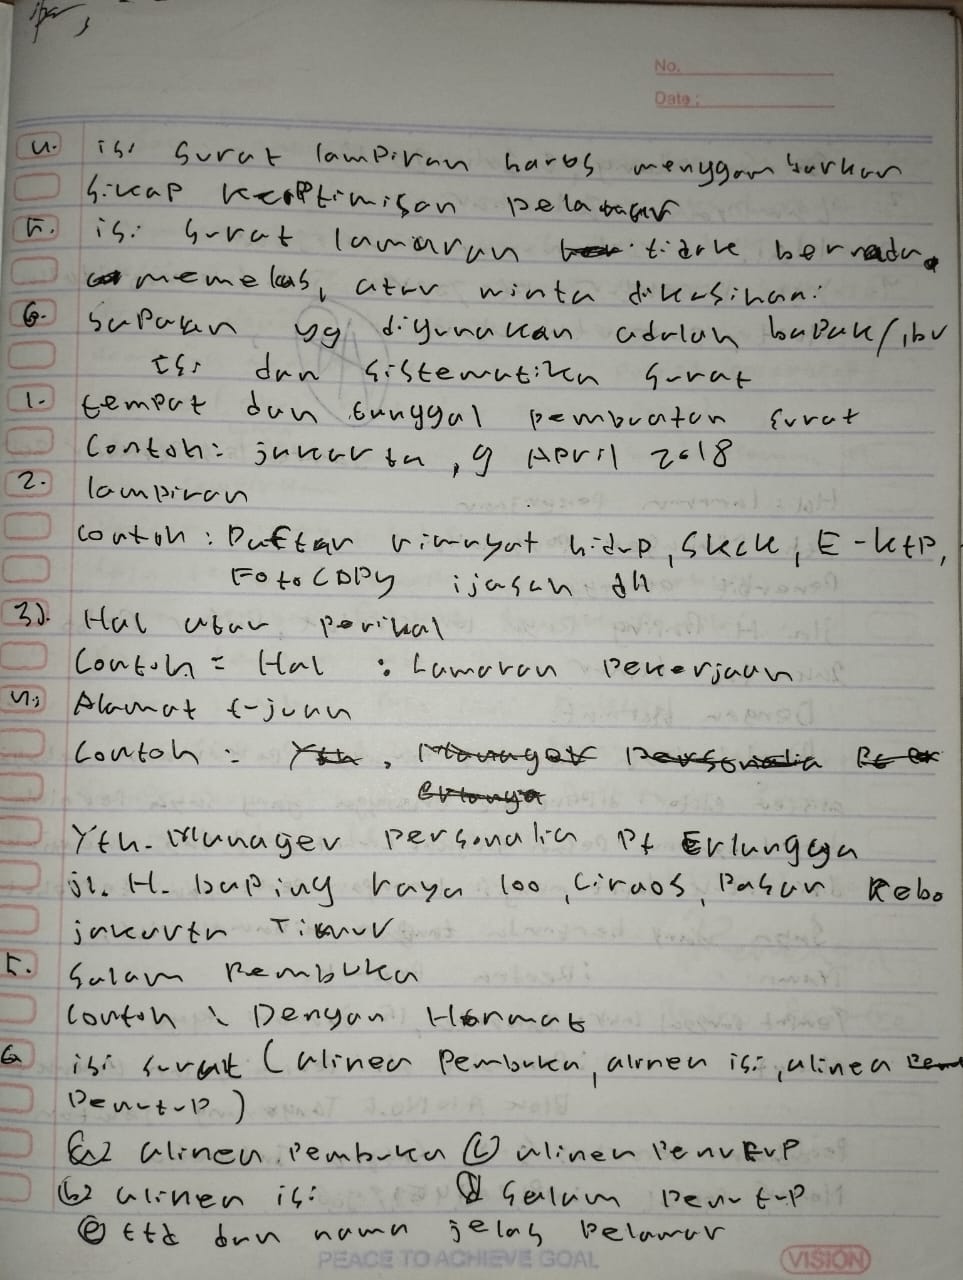 No.
Date :
4. isi surat lampiran harus menggambarkan
sikap keoptimisan pelamar
5. isi surat lamaran tidak bernada
memelas, atau minta dikasihani
6. Sapaan yg digunakan adalah bapak/ibu
Isi dan sistematika surat
1. tempat dan tanggal pembuatan surat
Contoh: jakarta, 9 April 2018
2. lampiran
contoh : Daftar riwayat hidup, Skck, E-ktp,
Fotocopy ijasah dll
3). Hal atau perihal
Contoh = Hal : Lamaran Pekerjaan
4. Alamat tujuan
Contoh : Yth, Manager Personalia
Yth. Manager personalia Pt Erlangga
jl. H. baping raya 100, Ciracas, Pasar Rebo
jakarta Timur
5. Salam Pembuka
Contoh : Dengan Hormat
6 isi surat (alinea Pembuka, alinea isi, alinea
Penutup)
(a) alinea Pembuka (c) alinea Penutup
(b) alinea isi (d) Salam Penutup
(e) ttd dan nama jelas Pelamar
PEACE TO ACHIEVE GOAL VISION